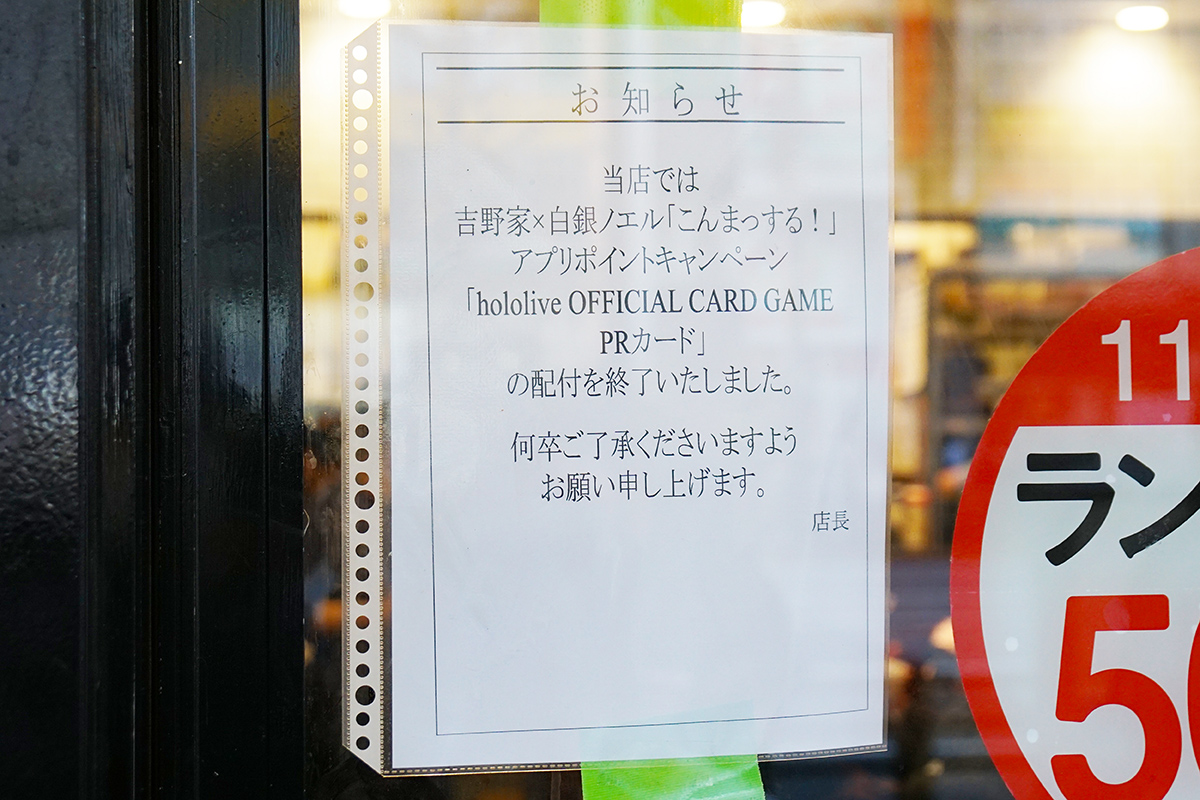 お知らせ
当店では
吉野家×白銀ノエル「こんまっする！」
アプリポイントキャンペーン
「hololive OFFICIAL CARD GAME
PRカード」
の配付を終了いたしました。
何卒ご了承くださいますよう
お願い申し上げます。
店長
11
ラン
5